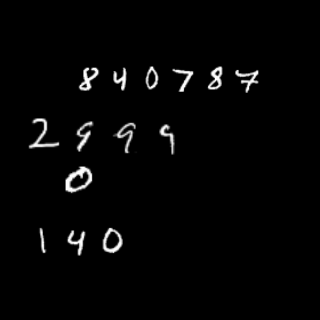 840787
2999
0
140